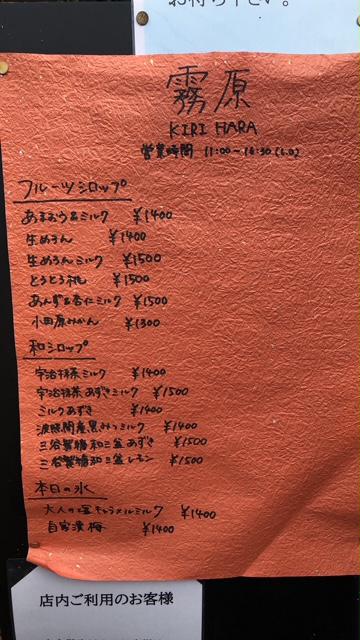 お待ち下さい。
霧原
KIRI HARA
営業時間 11:00~16:30 (L.O)
フルーツシロップ
あまおう&ミルク ¥1400
生めろん ¥1400
生めろんミルク ¥1500
とうとう桃 ¥1500
あんず&杏仁ミルク ¥1500
小田原みかん ¥1300
和シロップ
宇治抹茶ミルク ¥1400
宇治抹茶あずきミルク ¥1500
ミルクあずき ¥1400
波照間産黒みつミルク ¥1400
三谷製糖和三盆あずき ¥1500
三谷製糖和三盆レモン ¥1500
本日の氷
大人の塩キャラメルミルク ¥1400
自家漬梅 ¥1400
店内ご利用のお客様